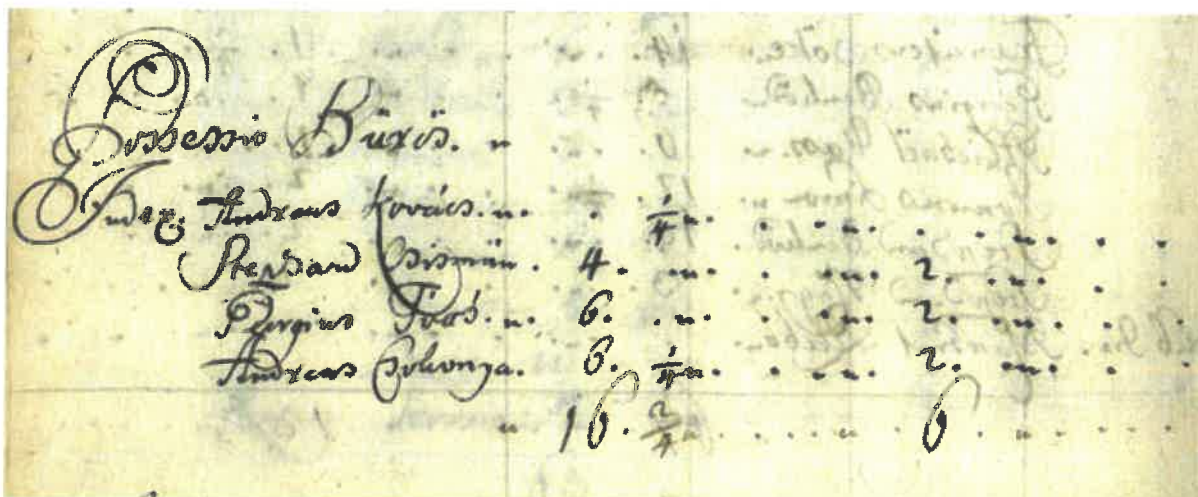 Possessio Bürös.
Judex. Andreas Kovács. 1/4
Stephan Csismán. 4. 2.
Georgius Toós. 6. 2.
Andreas Csolonga. 6. 1/4 2.
16. 2/4 6